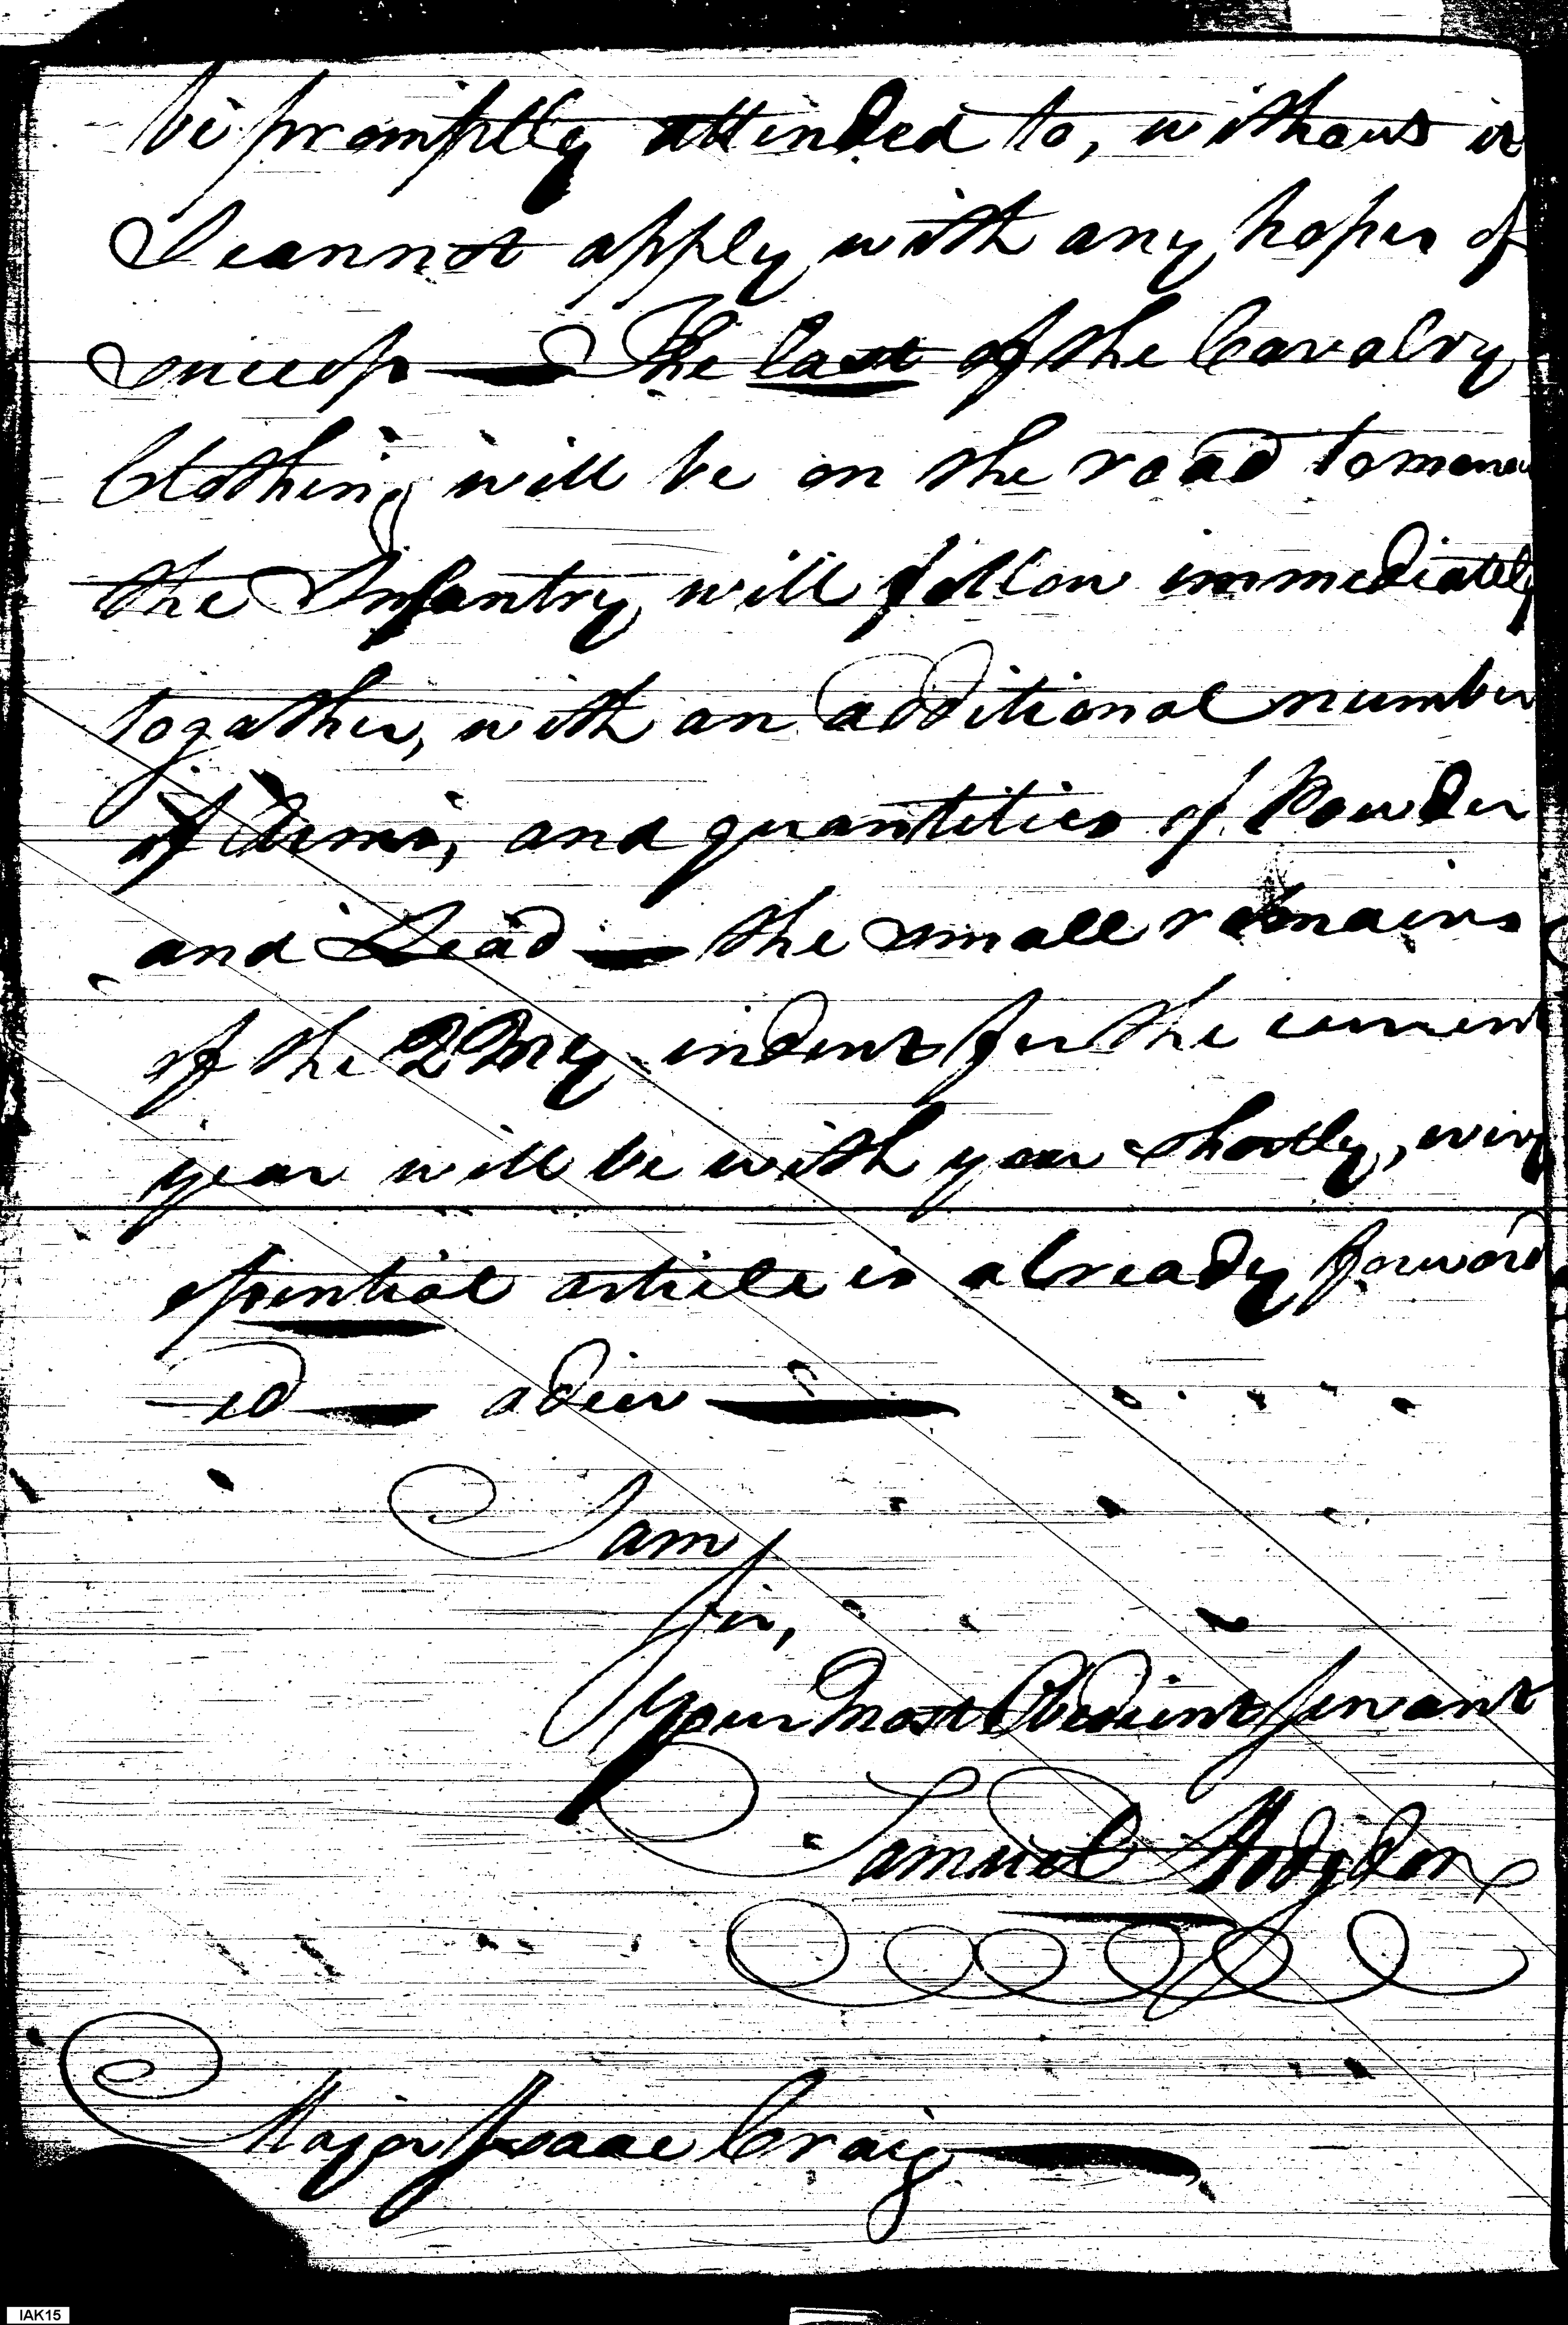 be promptly attended to, without it
I cannot apply with any hopes of
success — The last of the Cavalry
Clothing will be on the road tomorrow
the Infantry will follow immediately
together, with an additional number
of Arms, and quantities of Powder
and Lead — the small remains
of the 2 Mr indent for the current
year will be with you shortly, every
essential article is already forward
ed — adieu —
I am
Sir,
Your Most Obedient Servant
Samuel Hodgdon
Major Isaac Craig —
IAK15